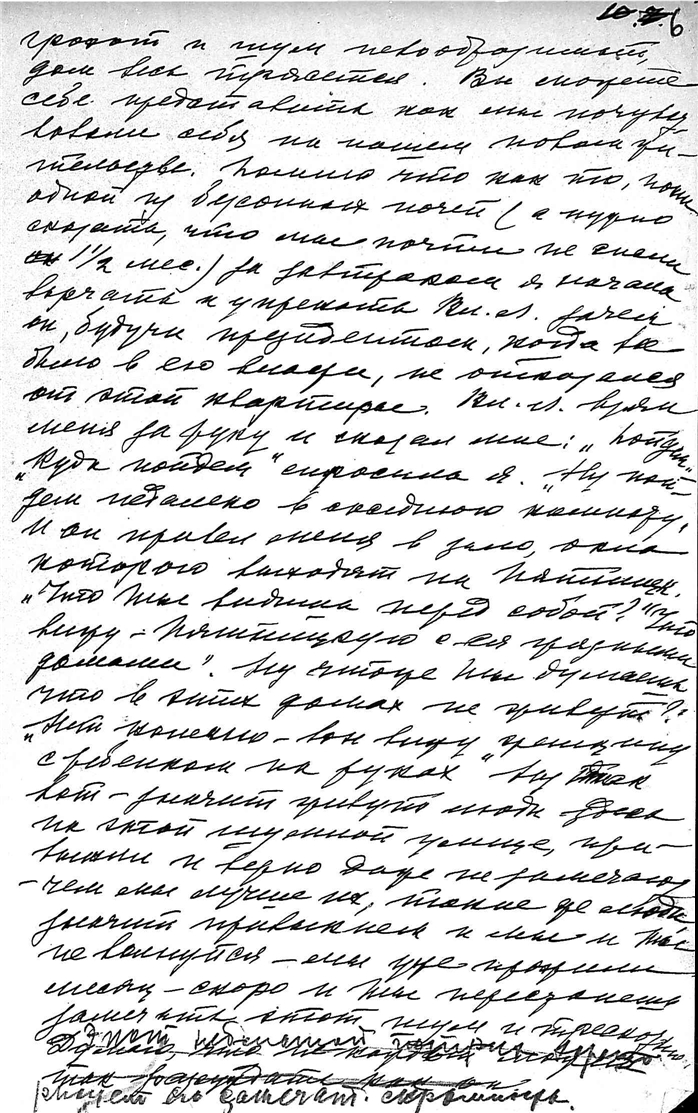 6
грохот и шум невообразимый,
дом весь трясется. Вы можете
себе представить как мы почувст
вовали себя на нашем новом жи-
тельстве. Помню что как то, после
одной из бессонных ночей (а нужно
сказать, что мы почти не спали
1 1/2 мес.) за завтраком я начала
ворчать и упрекать Вл. Л. зачем
он, будучи президентом, когда все
было в его власти, не отказался
от этой квартиры. Вл. Л. взял
меня за руку и сказал мне: „Пойдем"
„Куда пойдем" спросила я. „Ну пой-
дем недалеко в соседнюю комнату,
И он привел меня в зало, окна
которого выходят на Пятницк.
„Что ты видишь перед собой?" „Что
вижу – Пятницкую с ея грязными
домами". Ну что же ты думаешь
что в этих домах не живут?"
„Нет конечно – вон вижу женщину
с ребенком на руках" „Ну так
вот – значит живут люди здесь
на этой шумной улице, при-
выкли и верно даже не замечают
– чем мы лучше их, такие же люди
значит привыкнем и мы и ты
не волнуйся – мы уже прожили
месяц – скоро и ты перестанешь
замечать этот шум и треск
Этот небольшой
Думаю, что не каждый
так рассуждать как он
рисует его замечат. скромность.